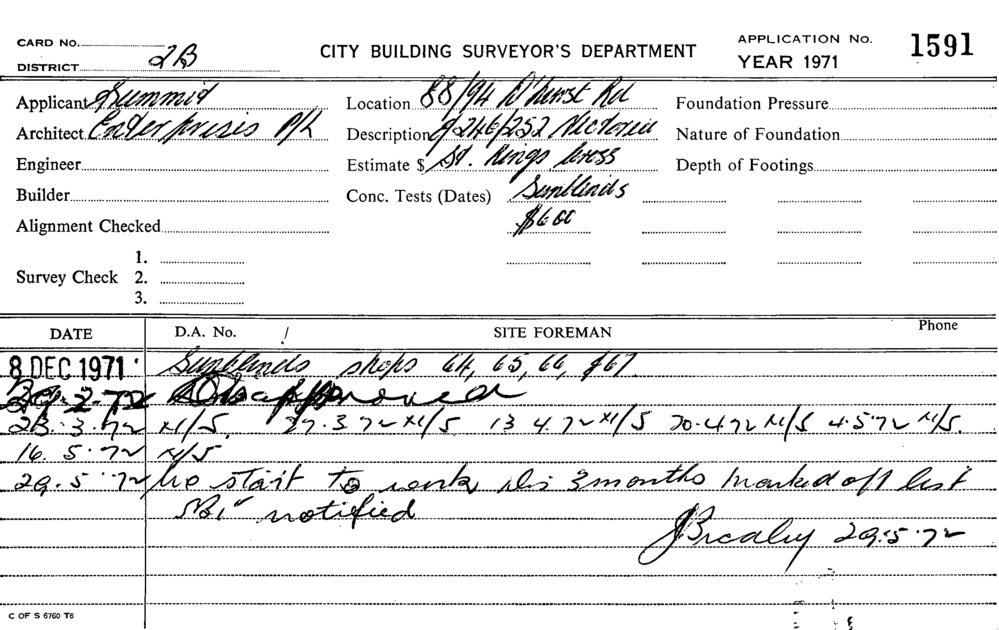 CARD No.
DISTRICT 2B
CITY BUILDING SURVEYOR'S DEPARTMENT
APPLICATION No. 1591
YEAR 1971
Applicant Summit
Architect Enterprises P/L
Engineer
Builder
Alignment Checked
Survey Check 1.
2.
3.
Location 88/94 D'hurst Rd
Description & 246/252 Victoria
Estimate $ St. Kings Cross
Conc. Tests (Dates) Sunblinds
$600
Foundation Pressure
Nature of Foundation
Depth of Footings
DATE D.A. No. / SITE FOREMAN Phone
8 DEC 1971 Sunblinds shops 64, 65, 66, &67.
29.2.72 Disapproved
23.3.72 N/S. 27.3.72 N/S 13.4.72 N/S 20.4.72 N/S 4.5.72 N/S.
16.5.72 N/S
29.5.72 No start to work in 3 months marked off list
notified
JBrealy 29.5.72
C OF S 6760 T6